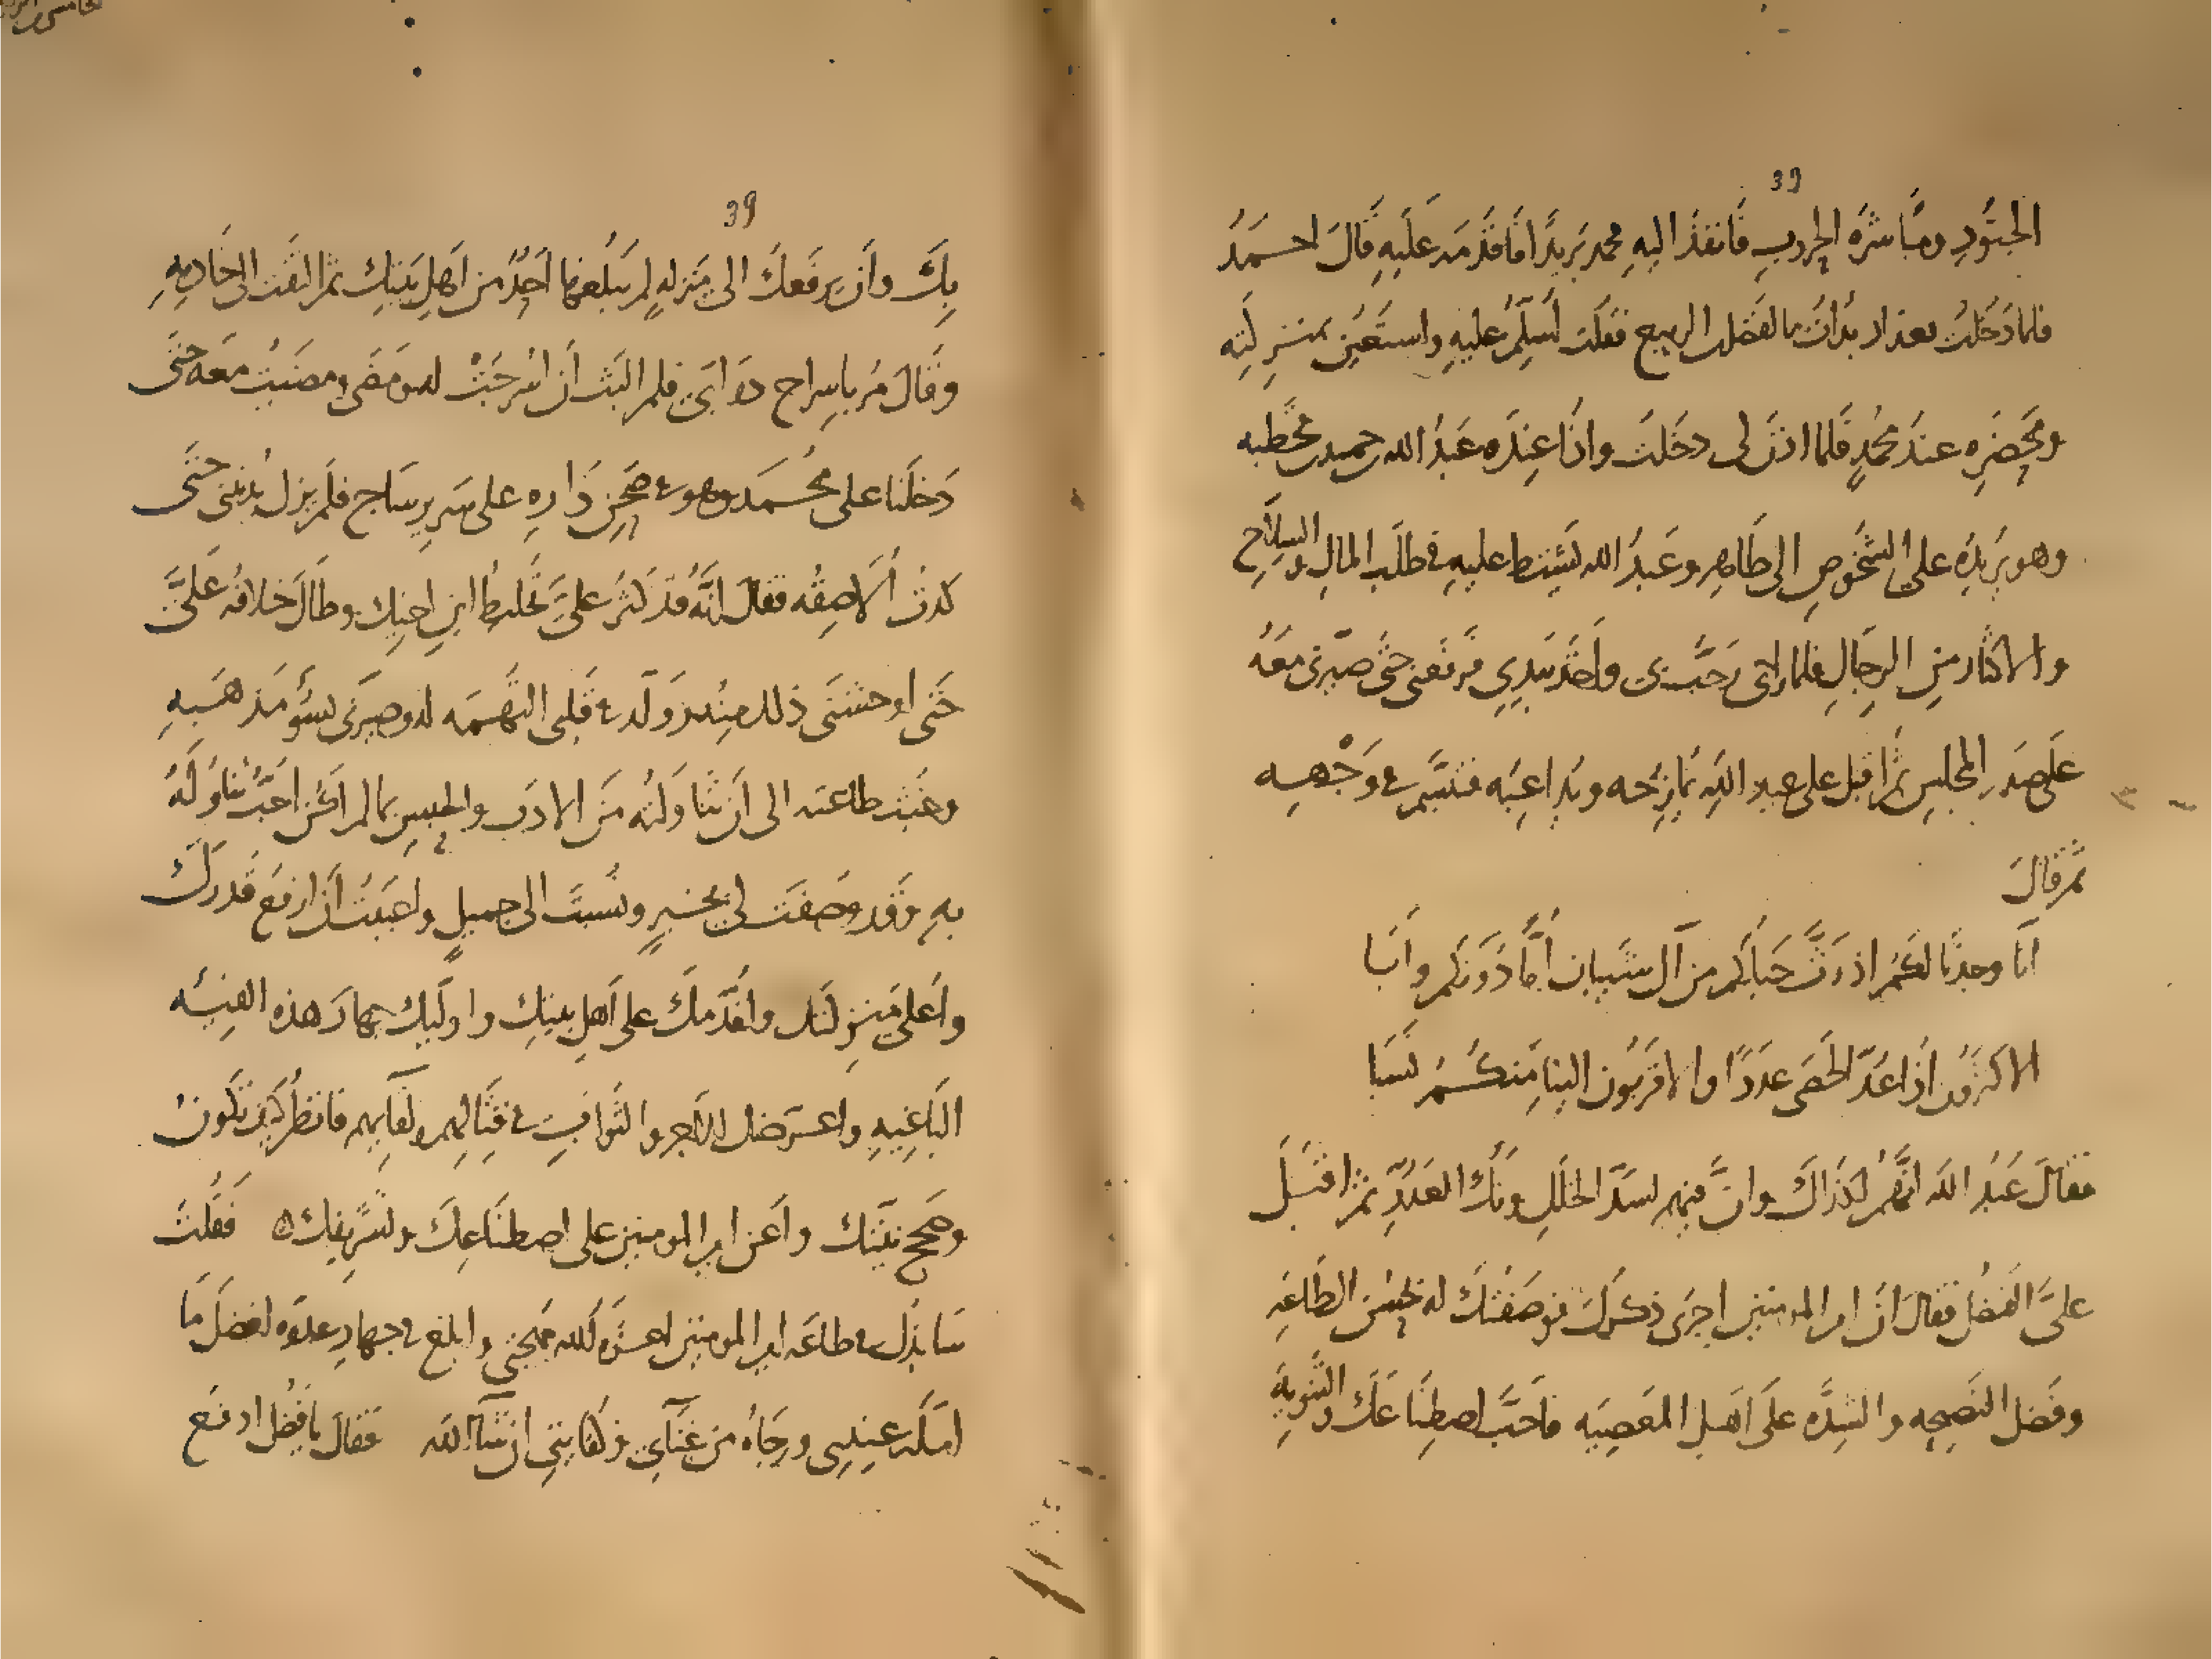 39
الجنُود ومباشرَه الحروبِ فَانفذَ اليهِ محمد بَريدًا فَاقدَمَه عَلَيهِ قَالَ احمدُ
فلما دَخَلتُ بغداد بدَأتُ بالفَضل بن الربيع فقلت أُسَلِّمُ عليهِ واستَعين بمنزلَتِه
ومَحضَرِه عندَ محمدٍ فلما اذن لى دخَلت واذَا عِندَه عَبدُ الله بن حميد بن قحطبه
وهو يُرِيدُه على الشُخُوصِ الى طَاهِر وعَبدُ الله يَشتط عليهِ فى طلَب المالِ والسِلاَحِ
والاكثار مِن الرِجَالِ فلما رانى رَحَّبَ بى واخَذَ بيَدِي فرَفعنى حَتّى صيّرنى معَهُ
عَلَى صَدرِ المَجلِسِ ثمَ اقبل على عبد اللَهِ يُمازِحه ويُداعِبُه فتبَسَّم فى وَجْهِه
ثمَّ قالَ
انّا وجدنا لكم اذ رَثَّ حَبلُكُم من آل شَيبان أُمًّا دُونَكُم وأَبَا
الاكثرُون اذَا عُدّ الحَصَى عدَدًا والاقرَبُون الينا مِنكُمُ نَسَبا
فقالَ عَبدُ اللَه انّهُم لكذَاكَ وانّ فيهِم لسَدّ الخَلَلِ ونَكْأَ العَدُوِّ ثمَّ اقبَلَ
علىَّ الفَضلُ فقالَ انّ امير المومنين اجرَى ذكرَكَ فوَصَفتُكَ له بحُسن الطَاعَهِ
وفَضل النَصِيحه والشِدَّه علَى اهلِ المَعصِيَه فاحَبَّ اصطِنَاعَكَ والتَنويهَ
39
بِكَ وأَن يرفَعكَ الى مَنزله لم يَبلُغها احَدٌ من اهلِ بَيتِك ثم التَفَتَ الى خَادمِهِ
وقَالَ مُر باسراج دَوابّى فلم البَث ان اُسرجَتْ له ومَضَى ومضَيتُ معَه حَتَّى
دَخلنا على محُمدٍ وهو فى صَحنِ دَارِهِ على سَرِيرِ سَاج فلَم يزل يُدنينى حَتَّى
كدتُ أُلاصِقُه فقالَ انَّهُ قد كَثُر علىَّ تخليطُ ابن اخيك وطالَ خلافُه عَلَىَّ
حَتّى اوحشنى ذلك مِنه ووَلّد فى قَلبى التُهمَه له وصيّرنى بسُوءِ مَذهَبِهِ
وخُبث طاعته الى أن تناولتُه من الادَب والحبسِ بما لم اكُن احبُّ تَناوُلَهُ
بهِ وقد وُصفتَ لى بخيرٍ ونُسبتَ الى جميلٍ واحبَبتُ أن ارفعَ قَدرَك
واُعلى مَنزلتَك واُقَدّمكَ على اَهلِ بيتِك واوَلّيك جهادَ هذه الفِئَه
البَاغِيهِ واعرّضك للاَجر والثَوابِ فى قِتَالِهِم ولِقَآيهِم فانظُر كيف تكُونُ
وصحّح نيّتَك واعن امير المومنين على اصطنَاعِكَ وتَشرِيفِك ه فقُلتُ
سَابذُل فى طاعَه امير المومنين اعَزّه الله مُهجَتى وابلغ فى جهادِ عدوّه افضلَ مَا
امّله عِندِى ورجَاهُ مِن غَنَآى وكفَايتى ان شَآءَ اللَه فقالَ يا فَضل ادفَع